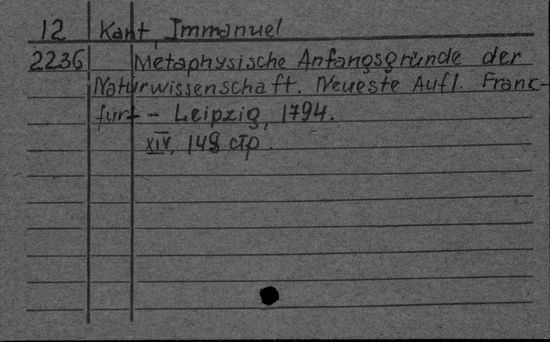 12 Kant, Immanuel
2236 Metaphysische Anfangsgründe der
Naturwissenschaft. Neueste Aufl. Frank-
furt - Leipzig, 1794.
XIV, 148 стр.